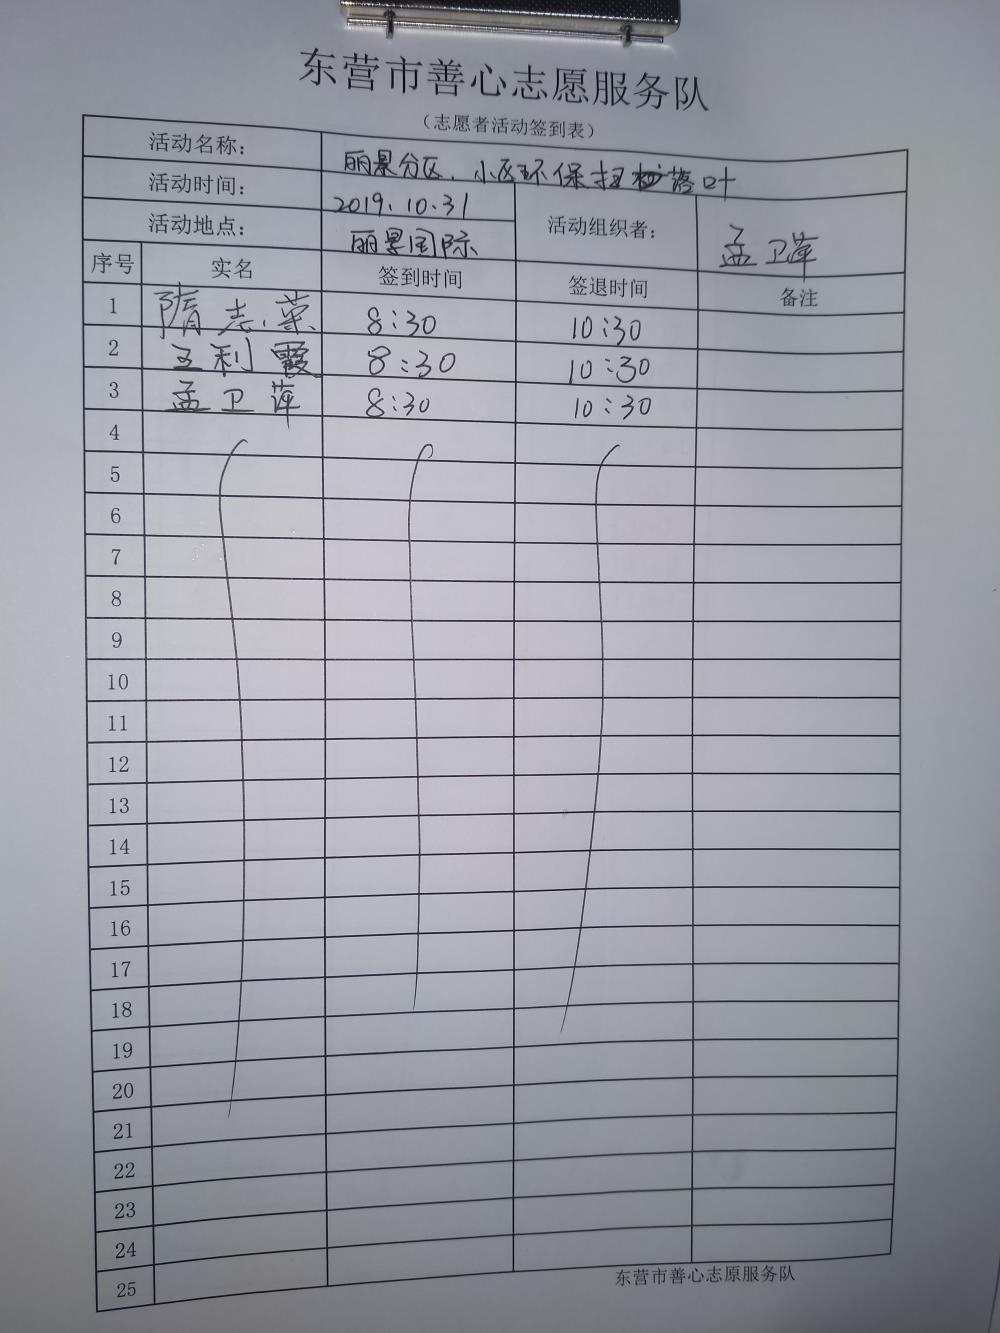 东营市善心志愿服务队
（志愿者活动签到表）
活动名称： 丽景分区、小区环保扫落叶
活动时间： 2019.10.31 活动组织者： 孟卫萍
活动地点： 丽景国际
序号 实名 签到时间 签退时间 备注
1 隋志荣 8:30 10:30
2 王利霞 8:30 10:30
3 孟卫萍 8:30 10:30
4
5
6
7
8
9
10
11
12
13
14
15
16
17
18
19
20
21
22
23
24
25
东营市善心志原服务队